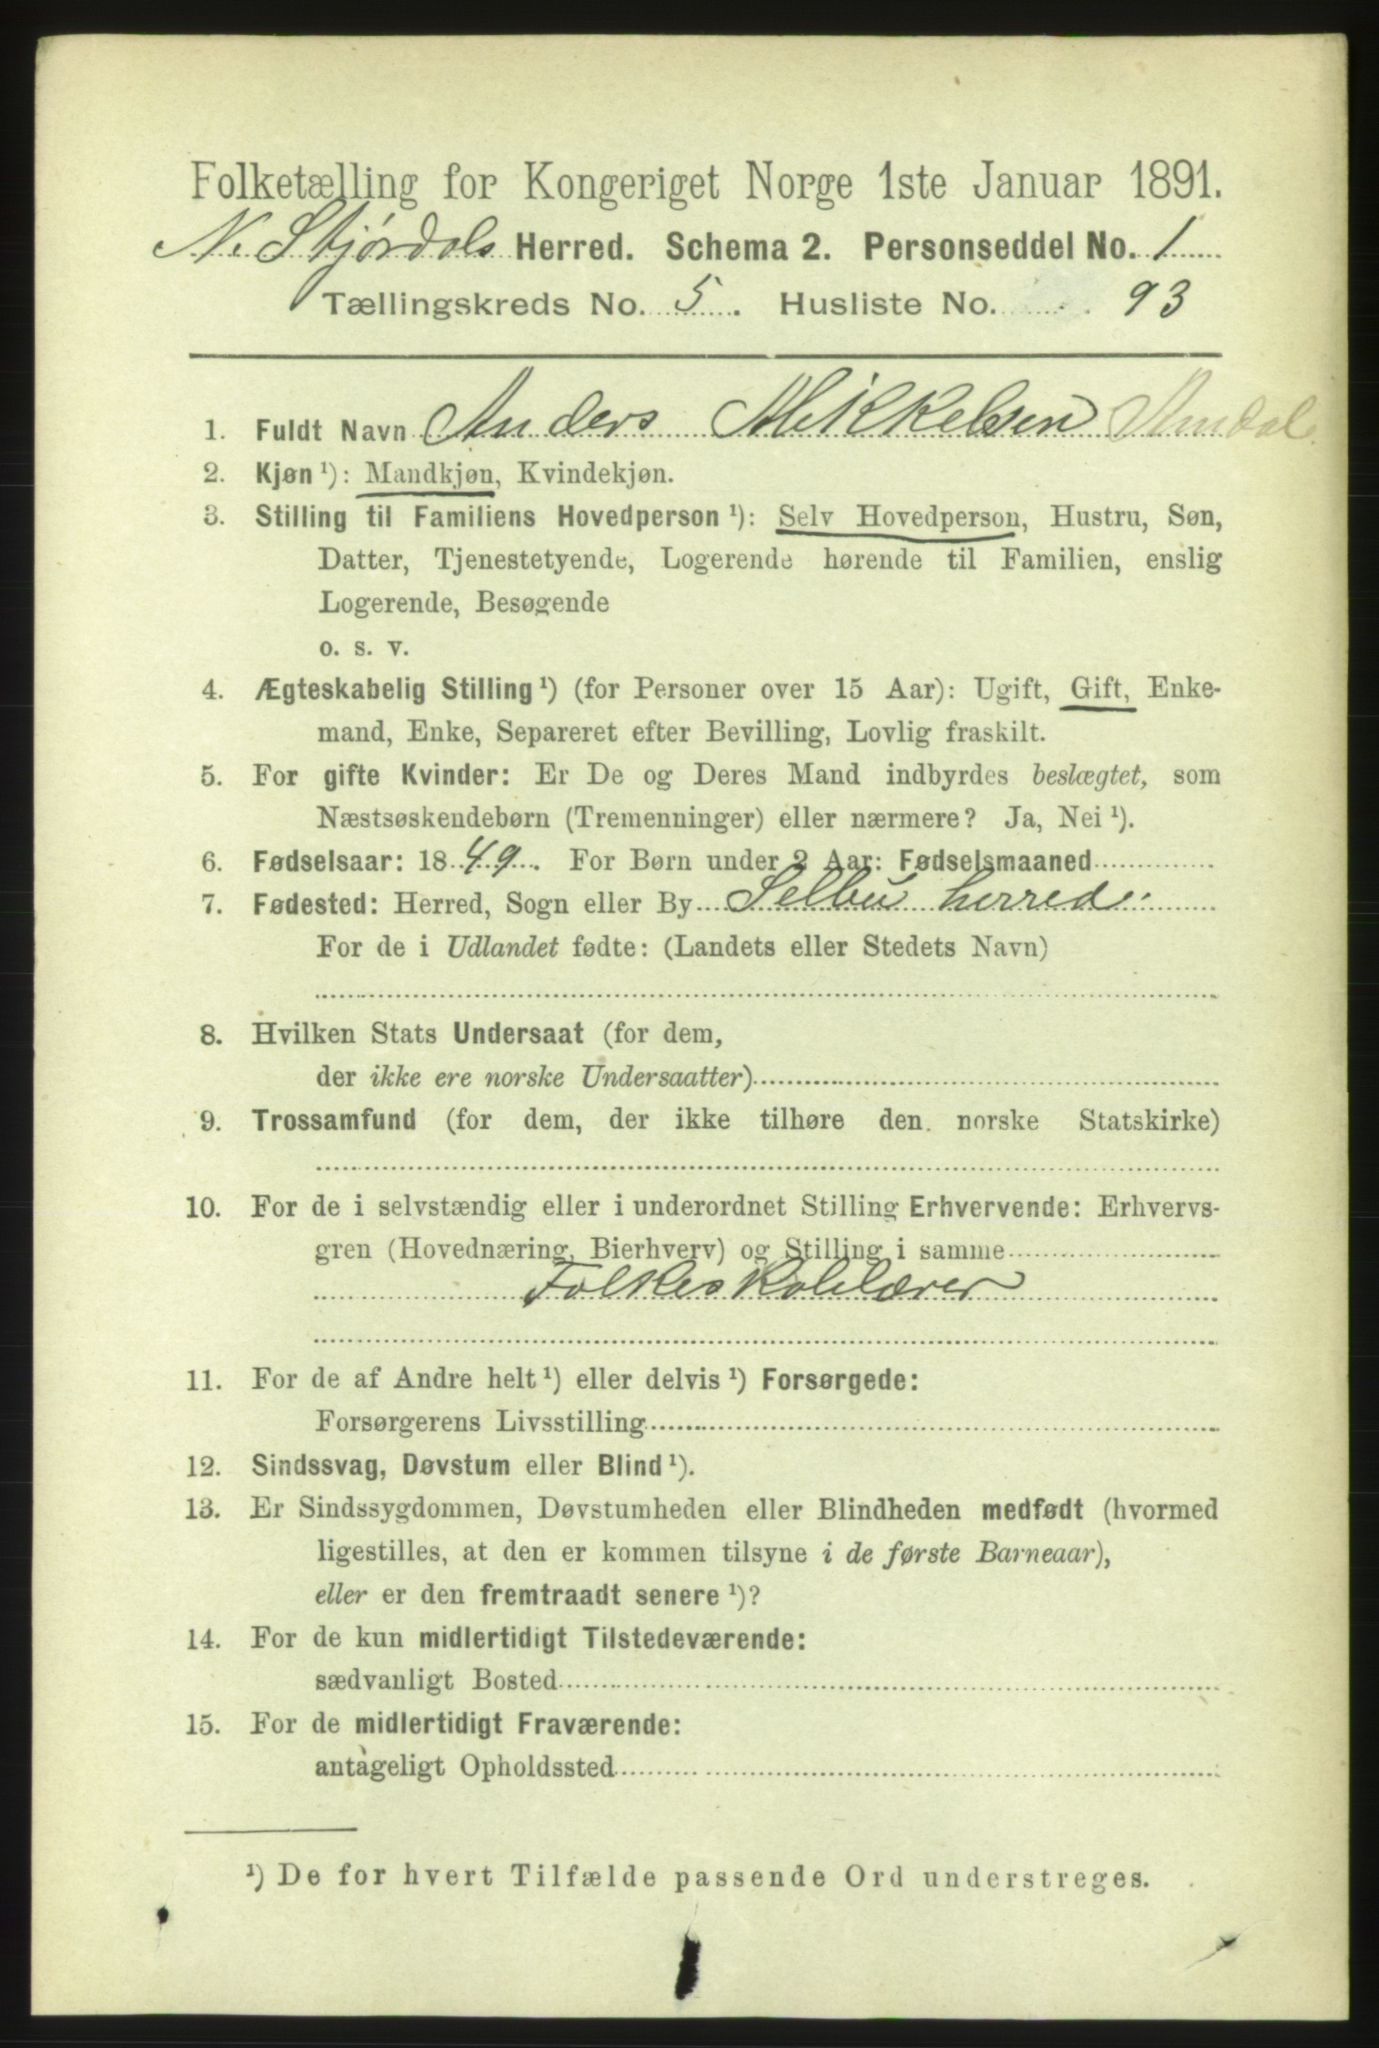 Folketælling for Kongeriget Norge 1ste Januar 1891.
N. Stjørdals Herred. Schema 2. Personseddel No. 1
Tællingskreds No. 5. Husliste No. 93
1. Fuldt Navn Anders Mikkelsen Amdal
2. Kjøn ¹): Mandkjøn, Kvindekjøn.
3. Stilling til Familiens Hovedperson ¹): Selv Hovedperson, Hustru, Søn,
Datter, Tjenestetyende, Logerende hørende til Familien, enslig
Logerende, Besøgende
o. s. v.
4. Ægteskabelig Stilling ¹) (for Personer over 15 Aar): Ugift, Gift, Enke-
mand, Enke, Separeret efter Bevilling, Lovlig fraskilt.
5. For gifte Kvinder: Er De og Deres Mand indbyrdes beslægtet, som
Næstsøskendebørn (Tremenninger) eller nærmere? Ja, Nei ¹).
6. Fødselsaar: 1849. For Børn under 2 Aar: Fødselsmaaned
7. Fødested: Herred, Sogn eller By Selbu herred.
For de i Udlandet fødte: (Landets eller Stedets Navn)
8. Hvilken Stats Undersaat (for dem,
der ikke ere norske Undersaatter)
9. Trossamfund (for dem, der ikke tilhøre den norske Statskirke)
10. For de i selvstændig eller i underordnet Stilling Erhvervende: Erhvervs-
gren (Hovednæring, Bierhverv) og Stilling i samme
Folkeskolelærer
11. For de af Andre helt ¹) eller delvis ¹) Forsørgede:
Forsørgerens Livsstilling
12. Sindssvag, Døvstum eller Blind ¹).
13. Er Sindssygdommen, Døvstumheden eller Blindheden medfødt (hvormed
ligestilles, at den er kommen tilsyne i de første Barneaar),
eller er den fremtraadt senere ¹)?
14. For de kun midlertidigt Tilstedeværende:
sædvanligt Bosted
15. For de midlertidigt Fraværende:
antageligt Opholdssted
¹) De for hvert Tilfælde passende Ord understreges.